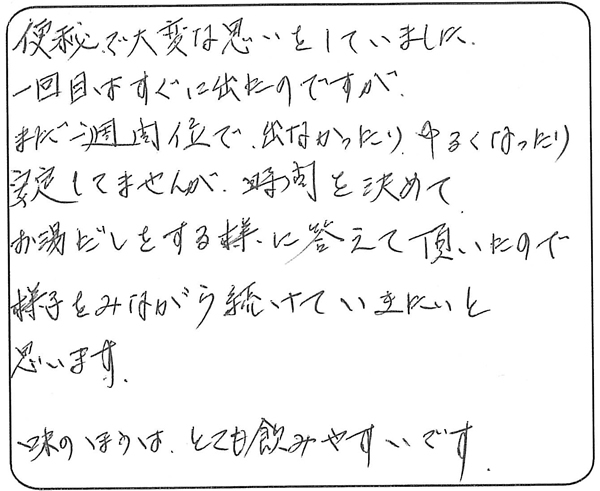 便秘で大変な思いをしていました。
一回目はすぐに出たのですが、
まだ二週間位で、出なかったり、ゆるくなったり
安定してませんが、時間を決めて
お湯だしをする様に答えて頂いたので
様子をみながら続けていきたいと
思います。
味のほうは、とても飲みやすいです。